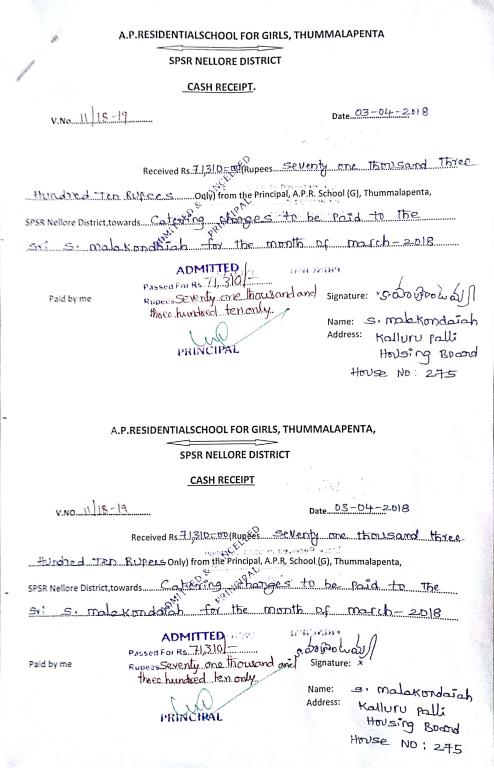 A.P.RESIDENTIALSCHOOL FOR GIRLS, THUMMALAPENTA
SPSR NELLORE DISTRICT
CASH RECEIPT.
V.No. 11/18-19 Date 03-04-2018
Received Rs.71,310=00(Rupees seventy one thousand three
Hundred Ten Rupees Only) from the Principal, A.P.R. School (G), Thummalapenta,
SPSR Nellore District,towards Catering charges to be paid to the
Sri S. malakondaiah for the month of march-2018
ADMITTED & CANCELLED
PRINCIPAL
ADMITTED
Passed For Rs. 71,310/-
Paid by me Rupees Seventy one thousand and
three hundred ten only.
PRINCIPAL
Signature:
Name: S. malakondaiah
Address: Kalluru palli
Housing Board
House No: 275
A.P.RESIDENTIALSCHOOL FOR GIRLS, THUMMALAPENTA,
SPSR NELLORE DISTRICT
CASH RECEIPT
V.NO. 11/18-19 Date 03-04-2018
Received Rs.71,310=00(Rupees seventy one thousand three
Hundred Ten Rupees Only) from the Principal, A.P.R, School.(G), Thummalapenta,
SPSR Nellore District,towards Catering charges to be paid to the
Sri S. malakondaiah for the month of march-2018
ADMITTED & CANCELLED
PRINCIPAL
ADMITTED
Passed For Rs. 71,310/-
Paid by me Rupees Seventy one thousand and
three hundred ten only.
PRINCIPAL
Signature: x
Name: S. malakondaiah
Address: Kalluru palli
Housing Board
House NO: 275